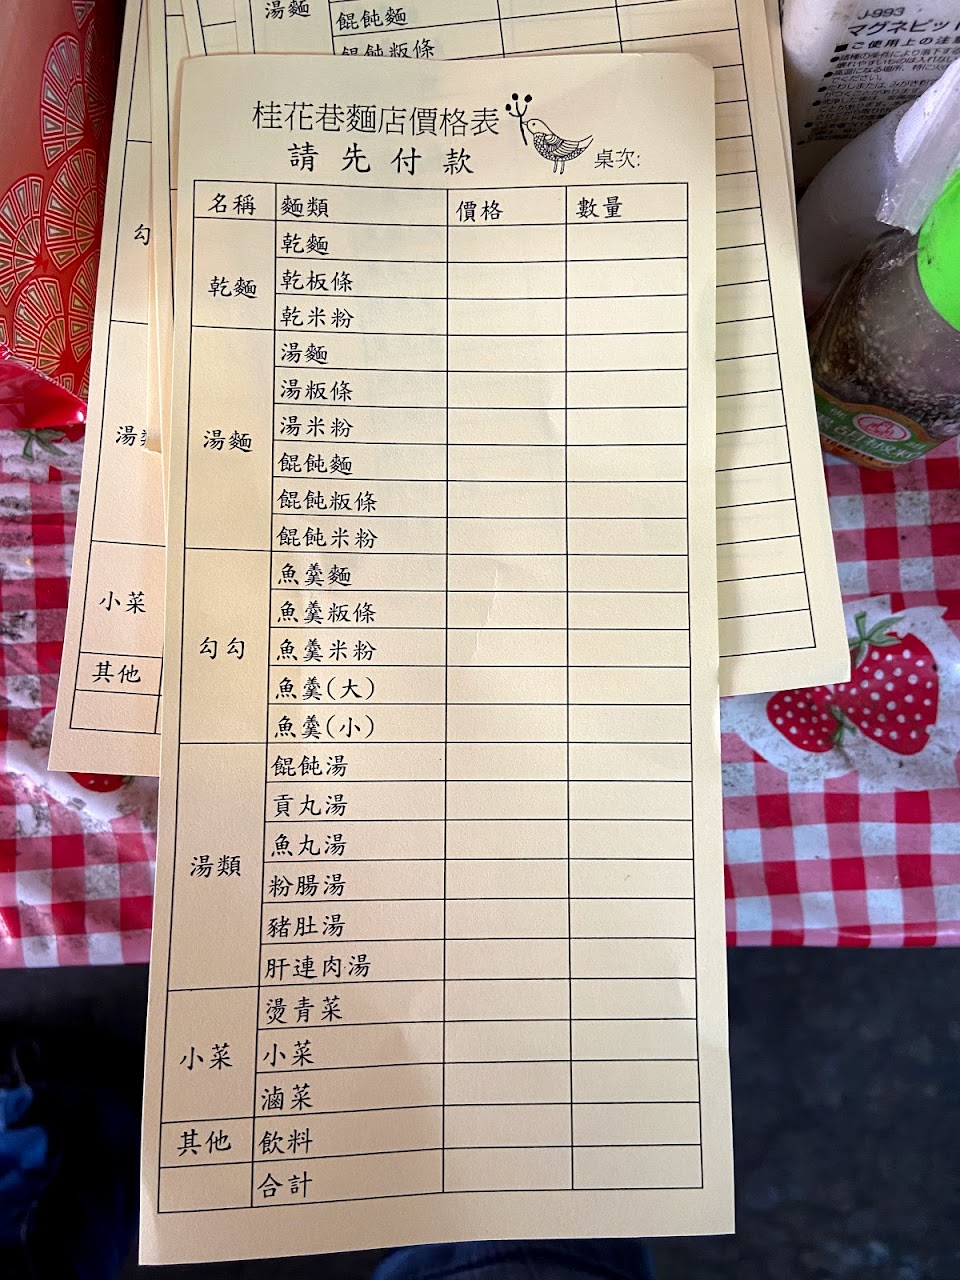 湯麵
餛飩麵
餛飩粄條
J-993
マグネピット
■ご使用上の注意
勾
湯麵
小菜
其他
桂花巷麵店價格表
請先付款
桌次:
名稱 麵類 價格 數量
乾麵
乾麵
乾板條
乾米粉
湯麵
湯麵
湯粄條
湯米粉
餛飩麵
餛飩粄條
餛飩米粉
勾勾
魚羹麵
魚羹粄條
魚羹米粉
魚羹(大)
魚羹(小)
湯類
餛飩湯
貢丸湯
魚丸湯
粉腸湯
豬肚湯
肝連肉湯
小菜
燙青菜
小菜
滷菜
其他 飲料
合計